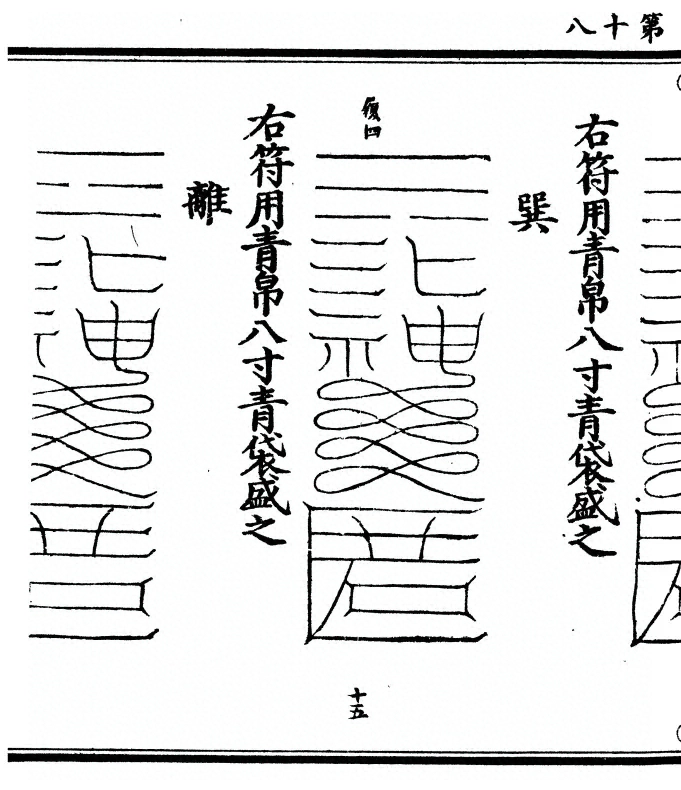 第十八
右符用青帛八寸青袋盛之
巽
復四
十五
右符用青帛八寸青袋盛之
離